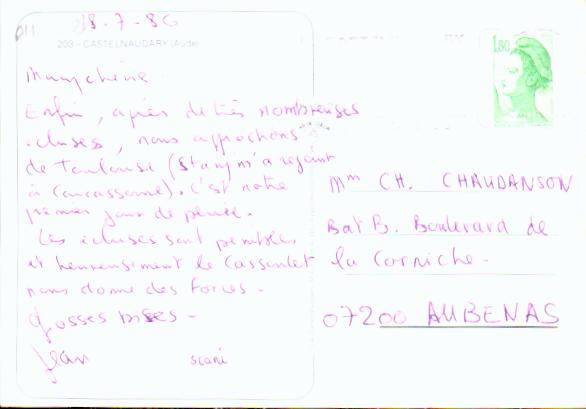 18.7-86
203 - CASTELNAUDARY (Aude)
Enfin, après de très nombreuses
écluses, nous approchons
de Toulouse (Stany m'a rejoint
à Carcassonne). C'est notre
premier jour de pluie.
Les écluses sont pénibles
et heureusement le Cassoulet
nous donne des forces -
Grosses bises -
Jean
1,80
Mm CH. CHAUDANSON
Bat B. Boulevard de
la Corniche.
07200 AUBENAS